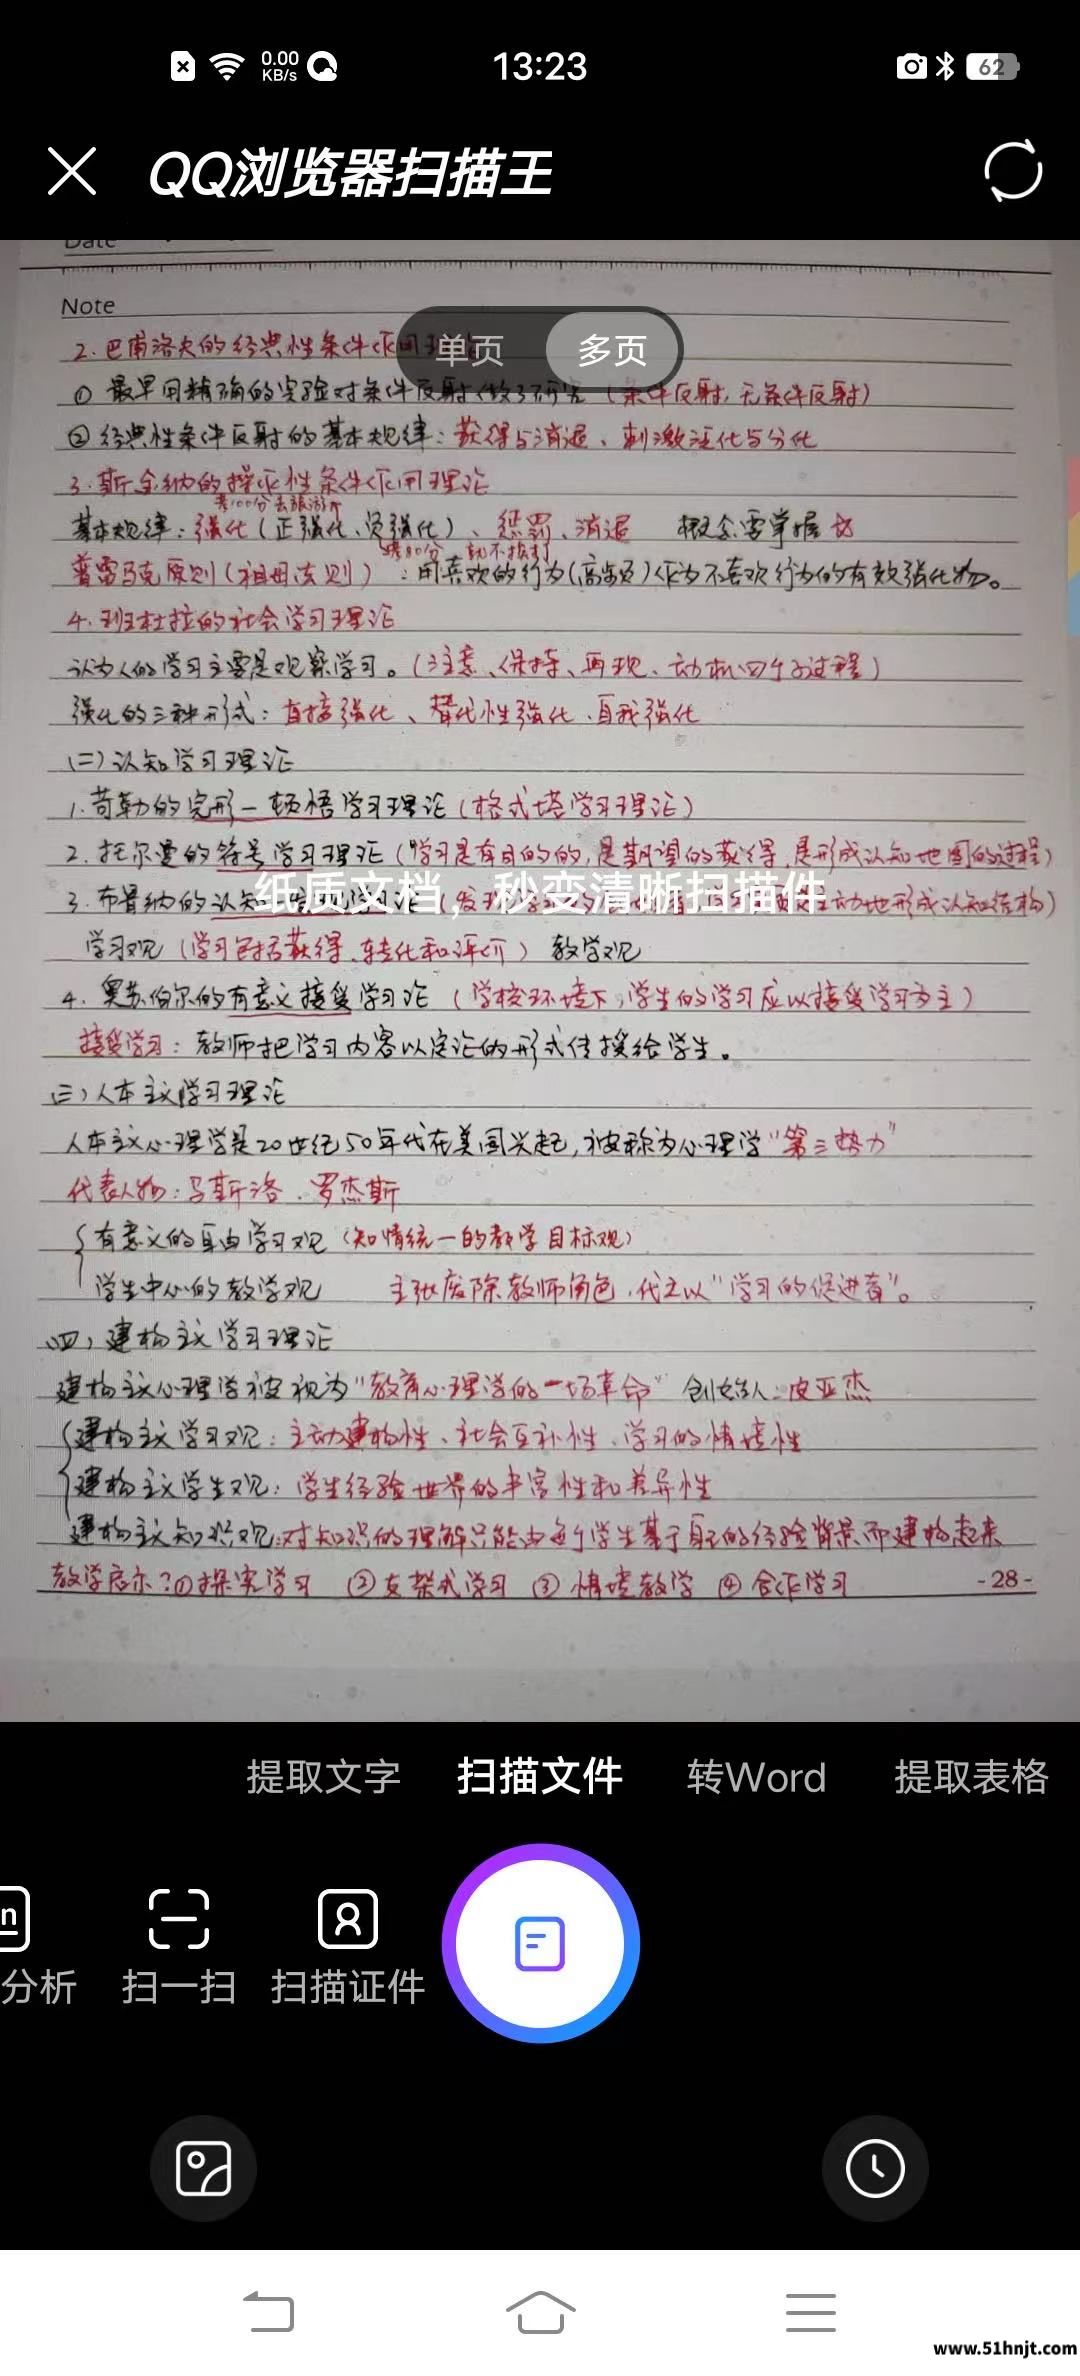 0.00 KB/s
13:23
62
QQ浏览器扫描王
Date
Note
单页 多页
2.巴甫洛夫的经典性条件作用
① 最早用精确的实验对条件反射做了研究（条件反射,无条件反射）
② 经典性条件反射的基本规律：获得与消退、刺激泛化与分化
3.斯金纳的操作性条件作用理论
考100分去旅游
基本规律：强化（正强化、负强化）、惩罚、消退 概念要掌握
考80分 就不挨打
普雷马克原则（祖母法则）：用喜欢的行为(高频)作为不喜欢行为的有效强化物。
4.班杜拉的社会学习理论
认为人的学习主要是观察学习。（注意、保持、再现、动机四个子过程）
强化的三种形式：直接强化、替代性强化、自我强化
(二)认知学习理论
1.苛勒的完形－顿悟学习理论（格式塔学习理论）
2.托尔曼的符号学习理论（学习是有目的的,是期望的获得,是形成认知地图的过程）
纸质文档，秒变清晰扫描件
3.布鲁纳的认知 论（发现 主动地形成认知结构）
学习观（学习包括获得、转化和评价） 教学观
4.奥苏伯尔的有意义接受学习论（学校环境下,学生的学习应以接受学习为主）
接受学习：教师把学习内容以定论的形式传授给学生。
(三)人本主义学习理论
人本主义心理学是20世纪50年代在美国兴起,被称为心理学“第三势力”
代表人物：马斯洛、罗杰斯
有意义的自由学习观（知情统一的教学目标观）
学生中心的教学观 主张废除教师角色,代之以“学习的促进者”。
(四)建构主义学习理论
建构主义心理学被视为“教育心理学的一场革命” 创始人：皮亚杰
建构主义学习观：主动建构性、社会互补性、学习的情境性
建构主义学生观：学生经验世界的丰富性和差异性
建构主义知识观:对知识的理解只能由每个学生基于自己的经验背景而建构起来
教学启示？①探究学习 ②支架式学习 ③情境教学 ④合作学习
-28-
提取文字 扫描文件 转Word 提取表格
分析 扫一扫 扫描证件
www.51hnjt.com